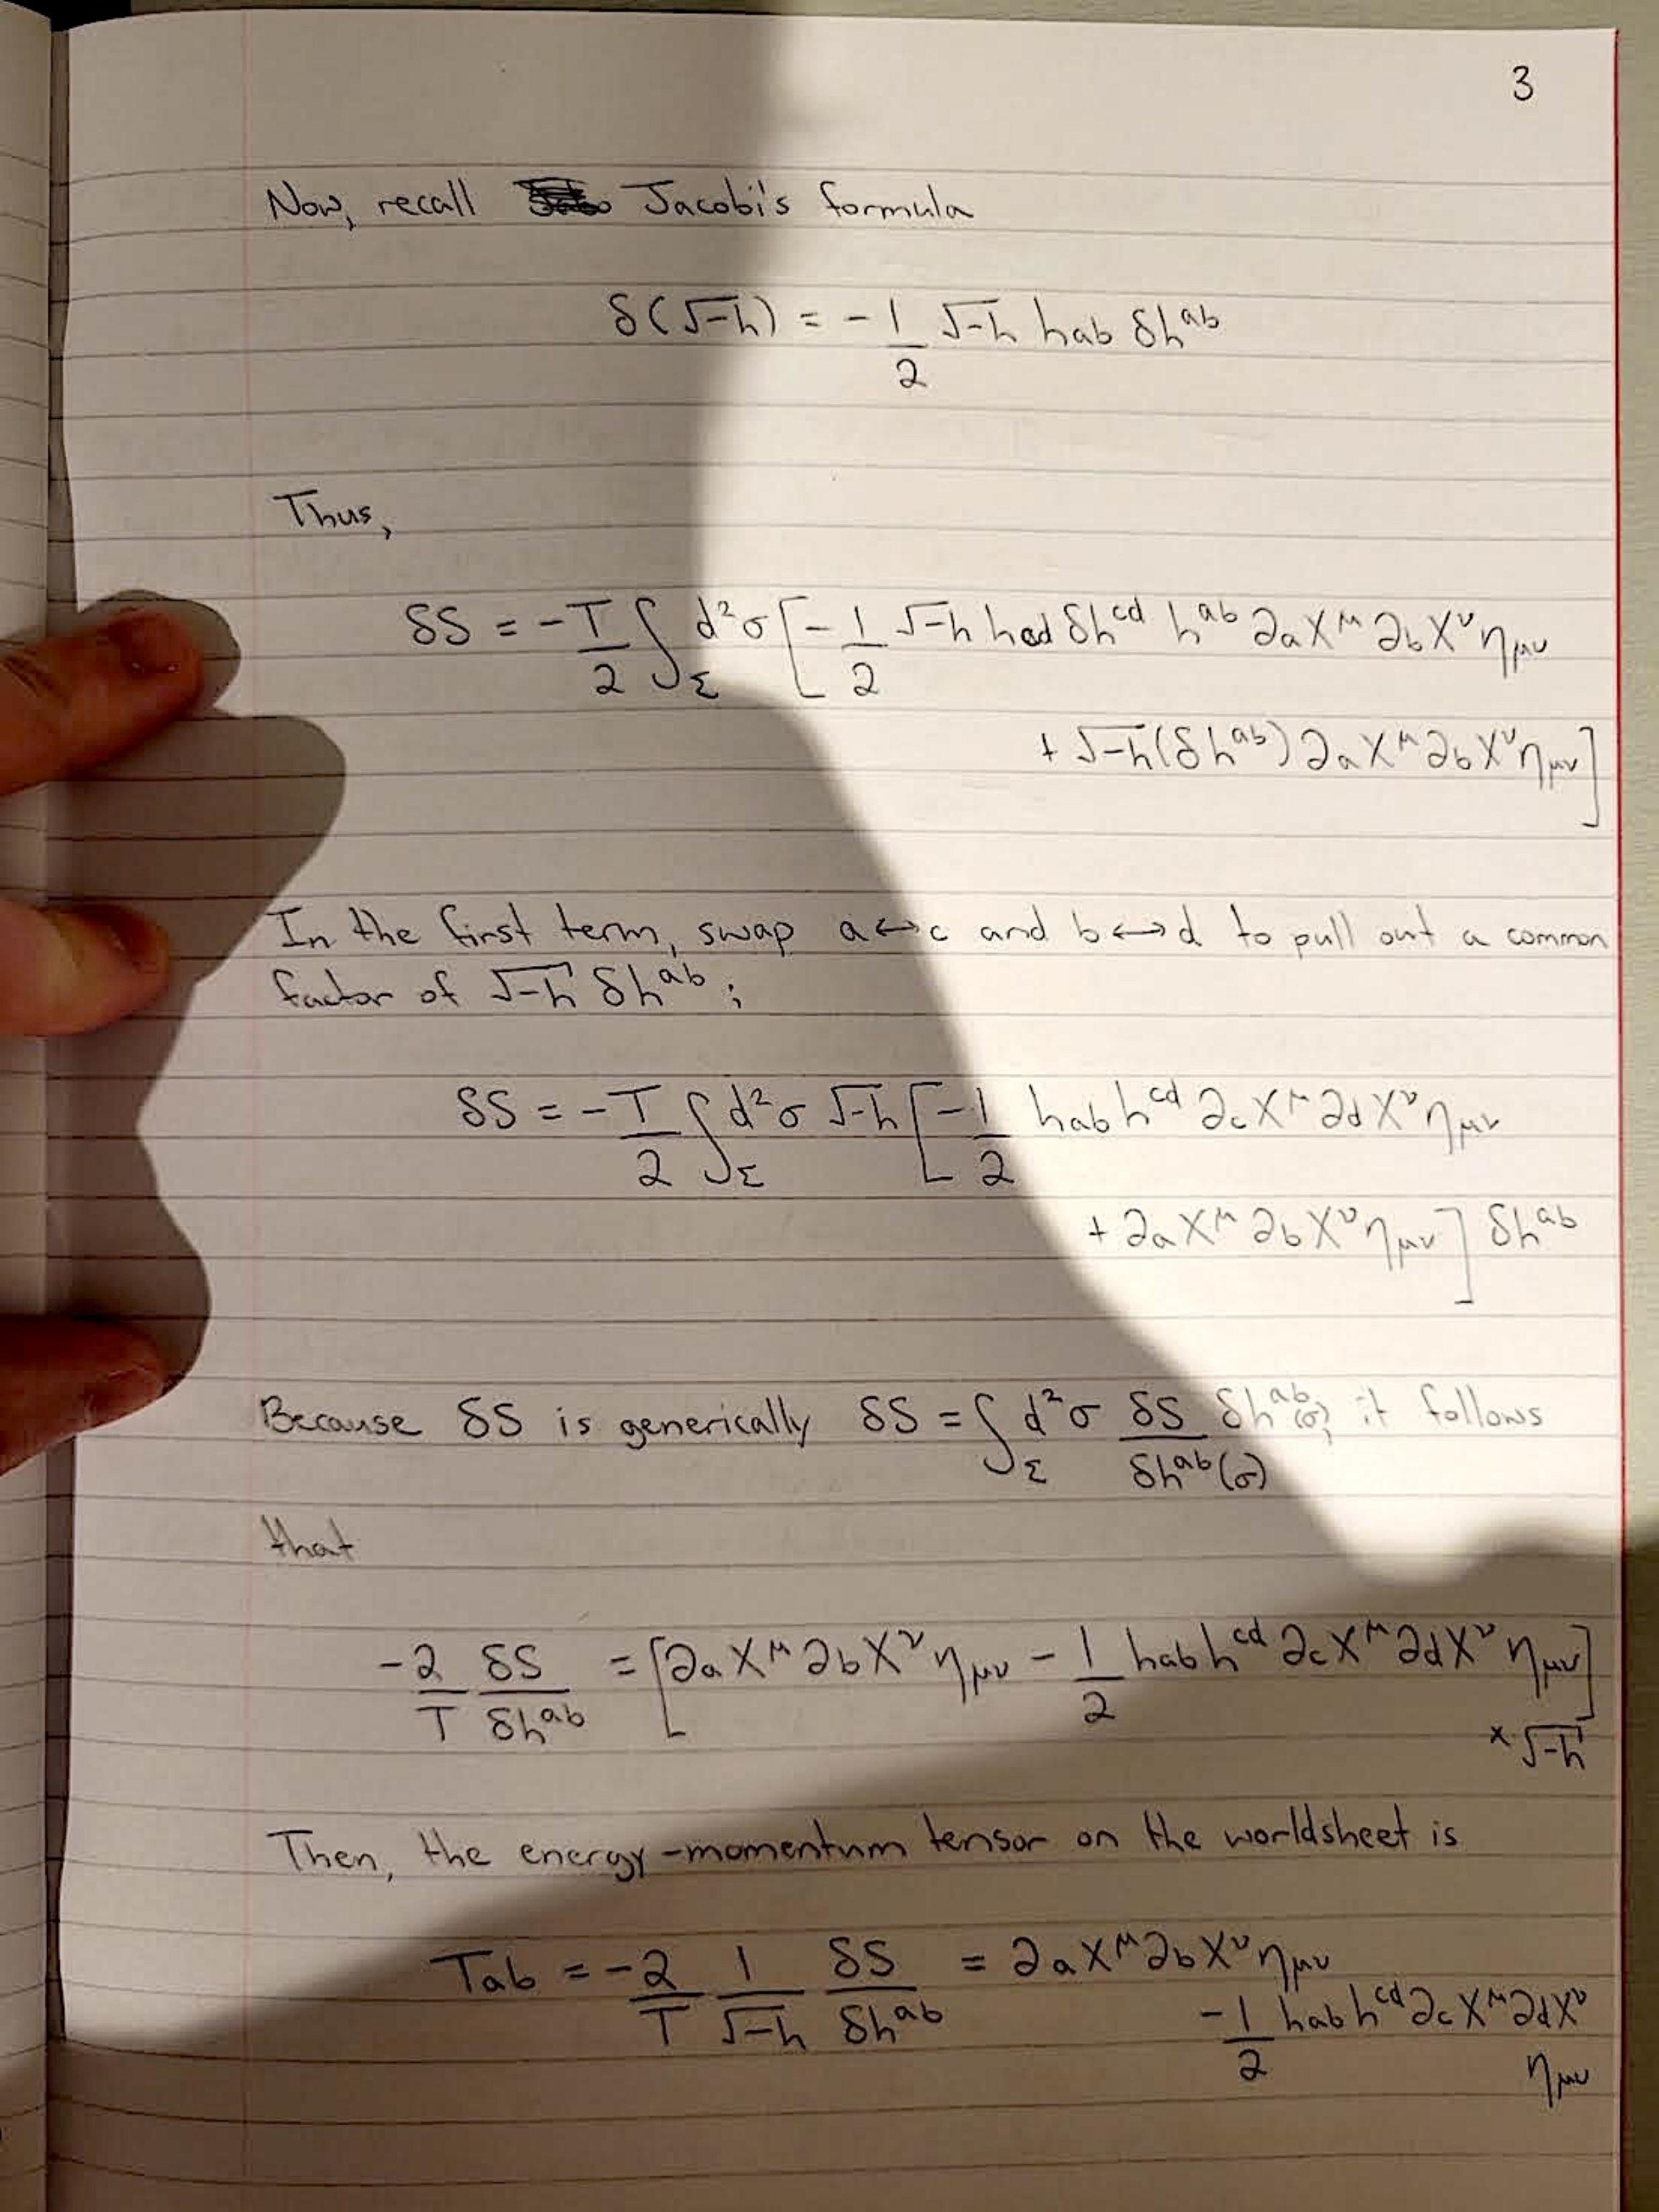 3
Now, recall Jacobi's formula
δ(√-h) = -1/2 √-h h_ab δh^ab
Thus,
δS = -T/2 ∫_Σ d²σ [-1/2 √-h h_cd δh^cd h^ab ∂_a X^μ ∂_b X^ν η_μν
+ √-h (δh^ab) ∂_a X^μ ∂_b X^ν η_μν]
In the first term, swap a↔c and b↔d to pull out a common
factor of √-h δh^ab;
δS = -T/2 ∫_Σ d²σ √-h [-1/2 h_ab h^cd ∂_c X^μ ∂_d X^ν η_μν
+ ∂_a X^μ ∂_b X^ν η_μν] δh^ab
Because δS is generically δS = ∫_Σ d²σ δS/δh^ab(σ) δh^ab(σ), it follows
that
-2/T δS/δh^ab = [∂_a X^μ ∂_b X^ν η_μν - 1/2 h_ab h^cd ∂_c X^μ ∂_d X^ν η_μν]
× √-h
Then, the energy-momentum tensor on the worldsheet is
T_ab = -2/T 1/√-h δS/δh^ab = ∂_a X^μ ∂_b X^ν η_μν
-1/2 h_ab h^cd ∂_c X^μ ∂_d X^ν
η_μν